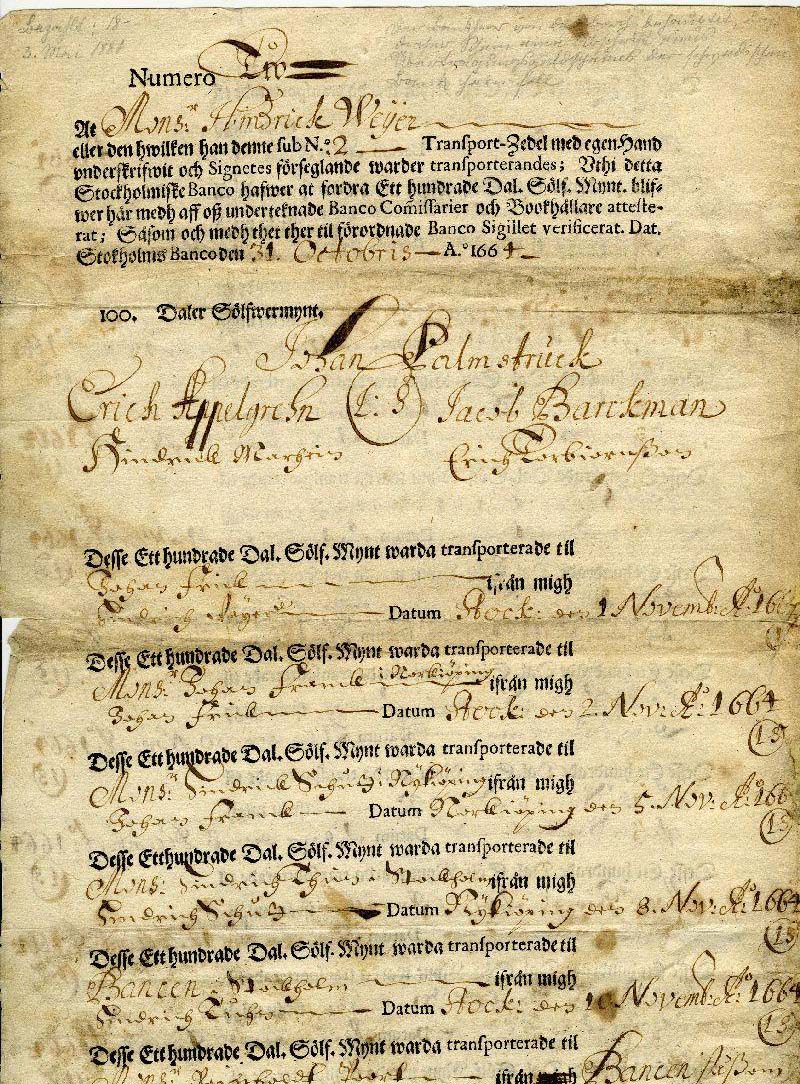 Numero Two
At Mons:r Hindrick Weijer
eller den hwilken han denne sub N.o 2 Transport-Zedel med egen Hand
vnderskrifwit och Signetes förseglande warder transporterandes; Vthi detta
Stockholmiske Banco hafwer at fordra Ett hundrade Dal. Sölf. Mynt. blif-
wer här medh aff oß underteknade Banco Comissarier och Bookhållare atteste-
rat; Såsom och medh thet ther til förordnade Banco Sigillet verificerat. Dat.
Stokholms Banco den 31. Octobris A.o 1664
100. Daler Sölfwermynt.
Johan Palmstruck
Erich Appelgrehn (L: S) Jacob Barckman
Hindrick
Erich Torbiörnßon
Desse Ett hundrade Dal. Sölf. Mynt warda transporterade til
Johan Frick ifrån migh
Hindrich Weijer Datum Stock: den 1 Novemb: A:o 166
Desse Ett hundrade Dal. Sölf. Mynt warda transporterade til
Mons:r Johan Franck i Norkiöping ifrån migh
Johan Frick Datum Stock: den 2. Nov: A:o 1664
(15)
Desse Ett hundrade Dal. Sölf. Mynt warda transporterade til
Mons:r Hindrick Schutz i Nykiöping ifrån migh
Johan Franck Datum Norkiöping den 5. Nov: A:o 166
(15)
Desse Ett hundrade Dal. Sölf. Mynt warda transporterade til
Mons: Hindrich i Stockholm ifrån migh
Hindrich Schutz Datum Nykiöping den 8. Nov: A:o 1664
(15)
Desse Ett hundrade Dal. Sölf. Mynt warda transporterade til
Bancen i Stockholm ifrån migh
Hindrich Datum Stock: den 10 Novemb: A:o 1664
(15)
Desse Ett hundrade Dal. Sölf. Mynt warda transporterade til
ifrån migh Bancen